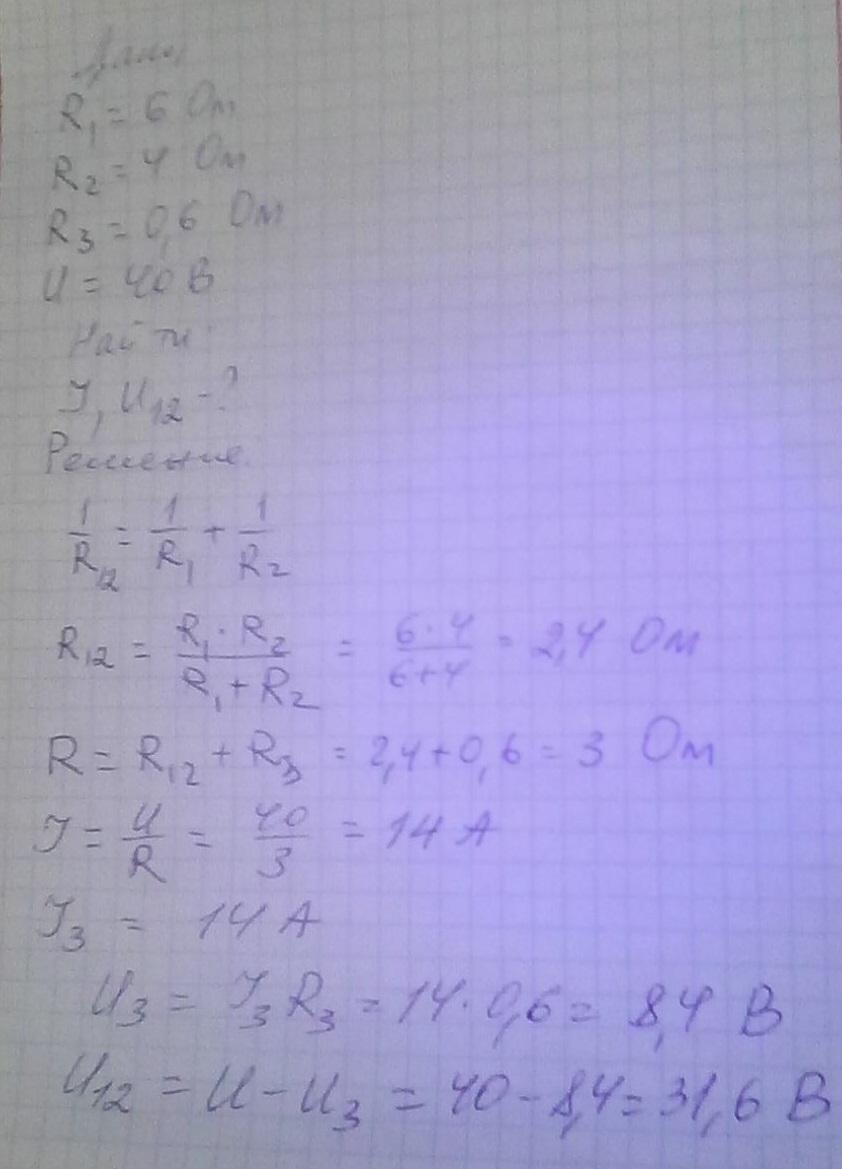 Дано:
R₁ = 6 Ом
R₂ = 4 Ом
R₃ = 0,6 Ом
U = 40 В
Найти:
I, U₁₂ - ?
Решение:
1/R₁₂ = 1/R₁ + 1/R₂
R₁₂ = R₁·R₂/R₁+R₂ = 6·4/6+4 = 2,4 Ом
R = R₁₂ + R₃ = 2,4+0,6 = 3 Ом
I = U/R = 40/3 = 14 А
I₃ = 14 А
U₃ = I₃R₃ = 14·0,6 = 8,4 В
U₁₂ = U - U₃ = 40 - 8,4 = 31,6 В